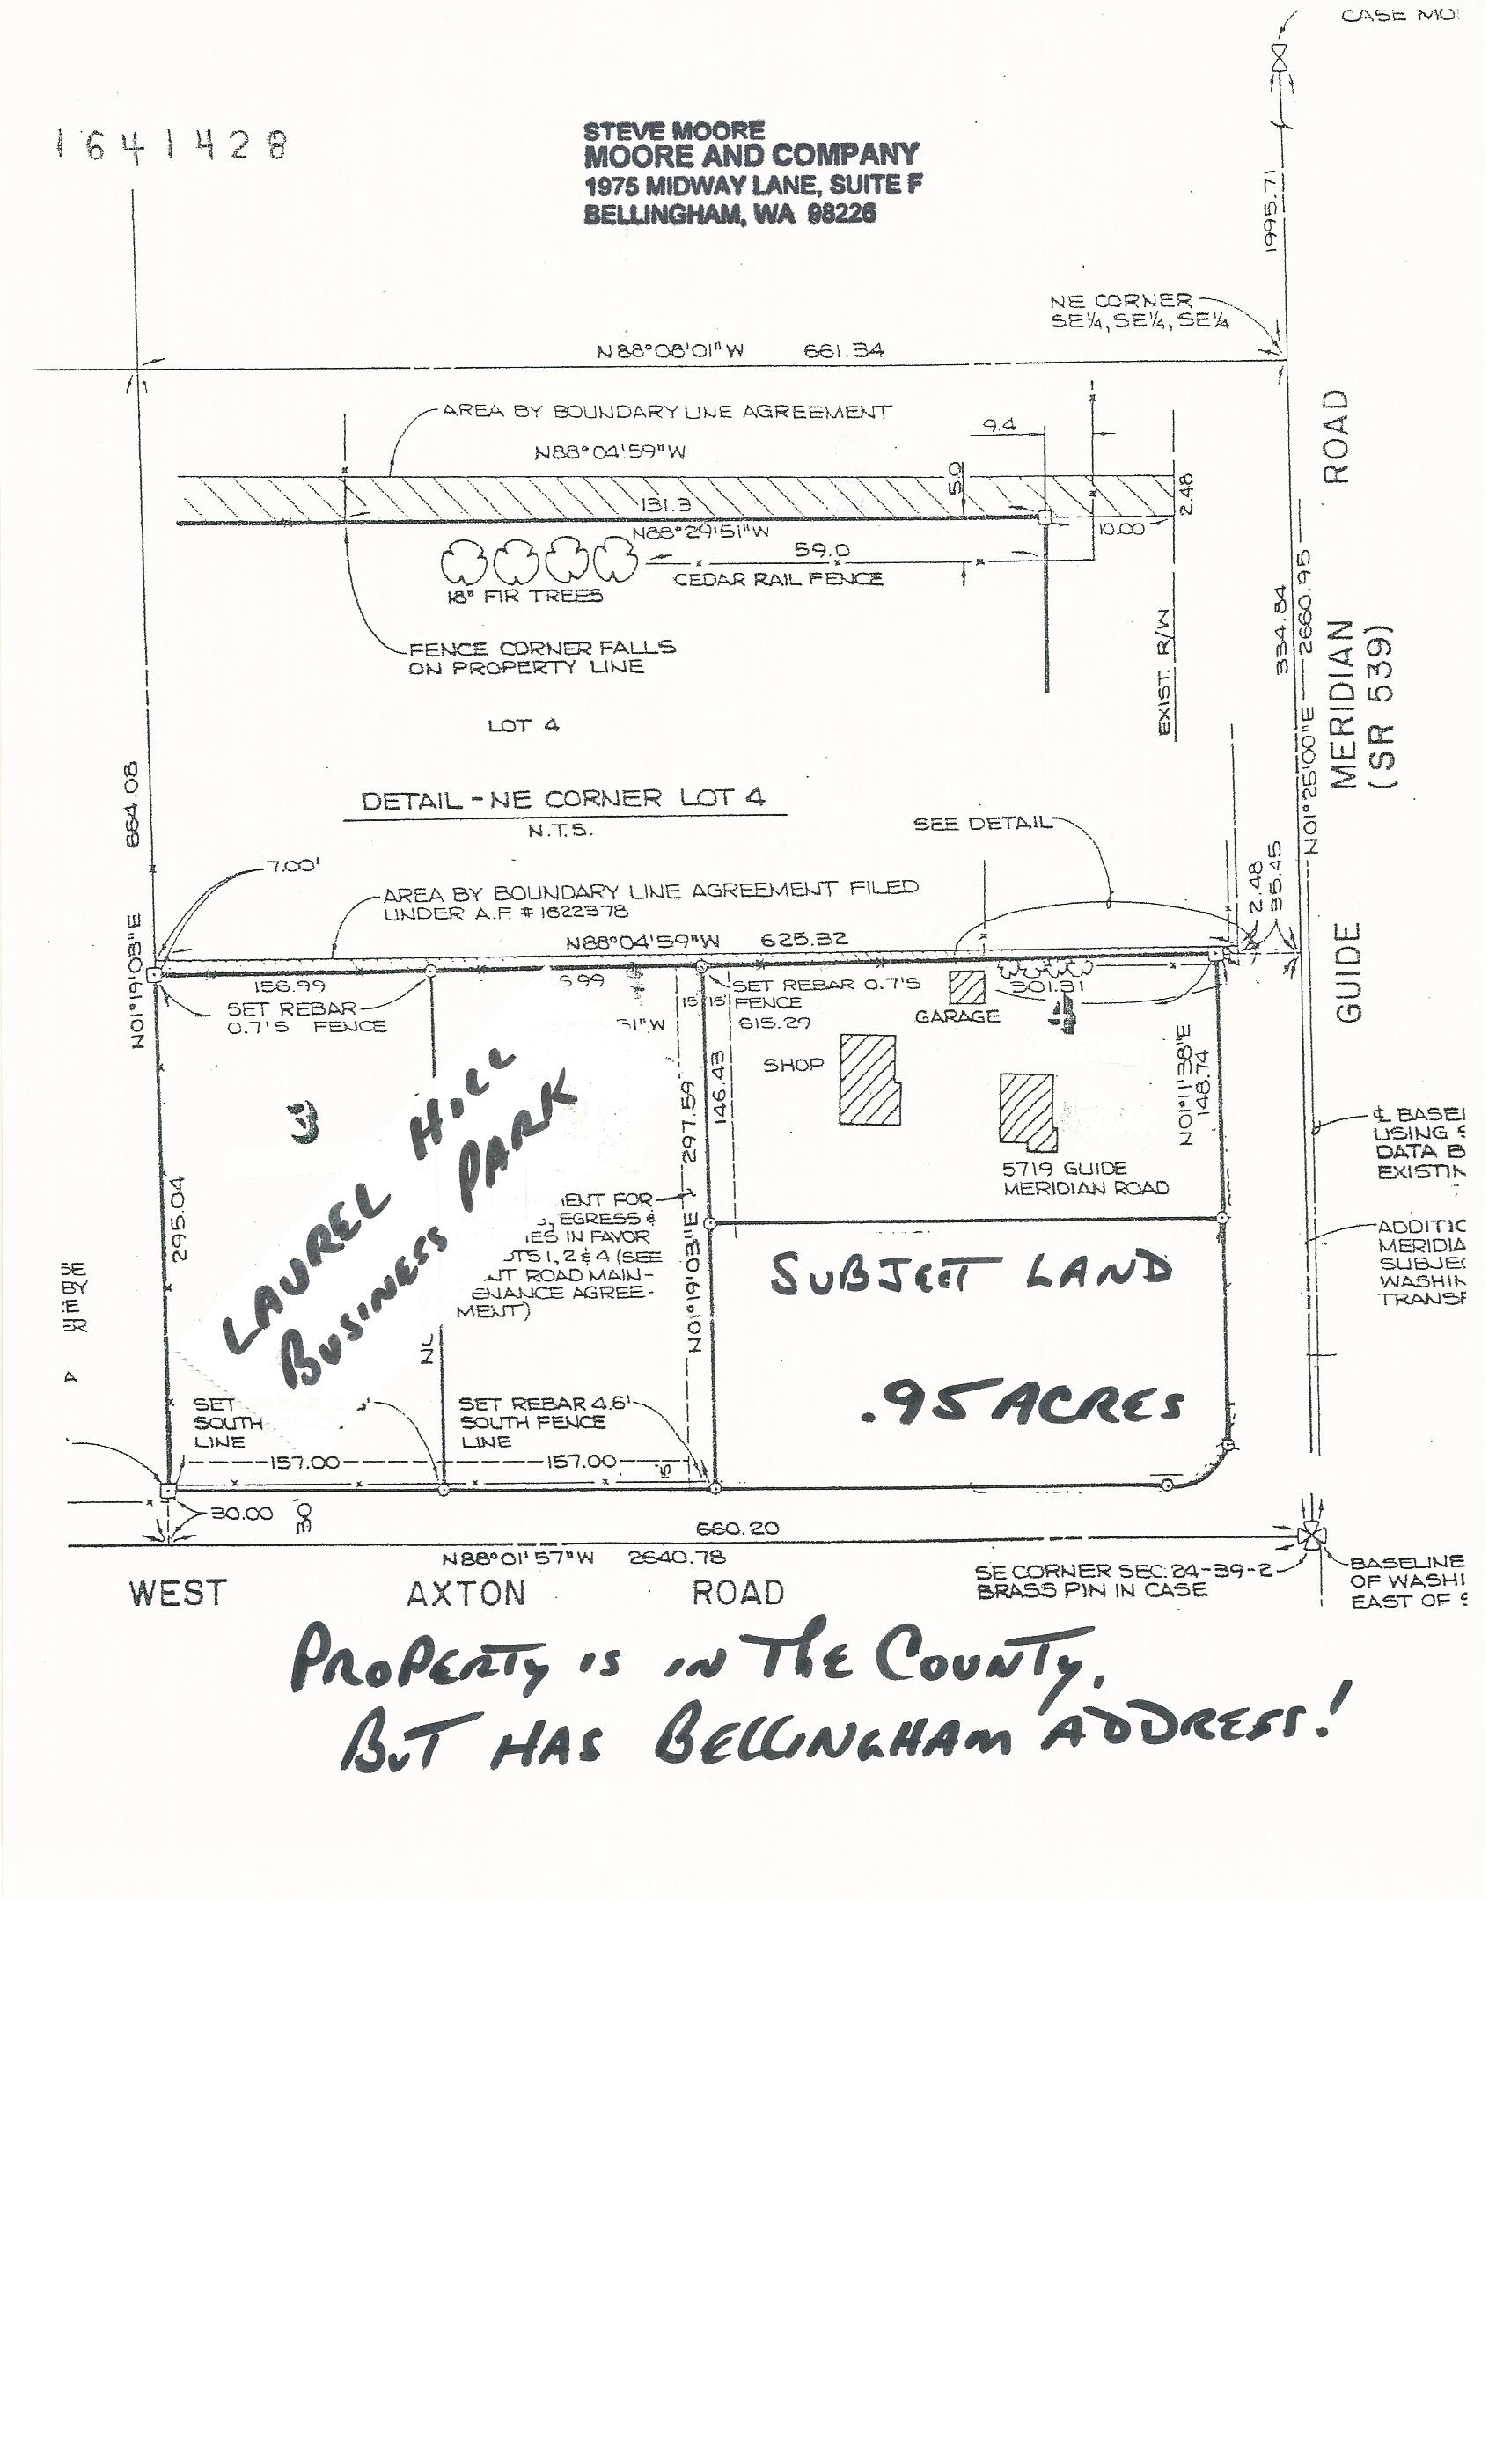 CASE
1641428
STEVE MOORE
MOORE AND COMPANY
1975 MIDWAY LANE, SUITE F
BELLINGHAM, WA 98226
1995.71
NE CORNER
SE¼, SE¼, SE¼
N88°08'01"W 661.34
AREA BY BOUNDARY LINE AGREEMENT
N88°04'59"W
9.4
5.0
2.48
131.3
N88°29'51"W
10.00
59.0
CEDAR RAIL FENCE
18" FIR TREES
FENCE CORNER FALLS
ON PROPERTY LINE
EXIST. R/W
LOT 4
DETAIL - NE CORNER LOT 4
N.T.S.
334.84
N01°25'00"E 2660.95
GUIDE MERIDIAN ROAD
(SR 539)
SEE DETAIL
N01°19'03"E 664.08
7.00'
AREA BY BOUNDARY LINE AGREEMENT FILED
UNDER A.F. # 1622378
2.48
35.45
N88°04'59"W 625.32
156.99
SET REBAR
0.7'S FENCE
15' 15'
SET REBAR 0.7'S
FENCE
615.29
301.31
GARAGE
4
SHOP
146.43
N01°11'38"E
148.74
5719 GUIDE
MERIDIAN ROAD
3
LAUREL HILL
BUSINESS PARK
295.04
N01°19'03"E 297.59
ENT FOR
EGRESS &
IES IN FAVOR
OTS 1, 2 & 4 (SEE
NT ROAD MAIN-
ENANCE AGREE-
MENT)
SUBJECT LAND
.95 ACRES
℄ BASE
USING
DATA B
EXISTIN
ADDITIO
MERIDIA
SUBJEC
WASHIN
TRANSF
SET
SOUTH
LINE
SET REBAR 4.6'
SOUTH FENCE
LINE
157.00
157.00
15'
30.00
30'
660.20
N88°01'57"W 2640.78
SE CORNER SEC. 24-39-2
BRASS PIN IN CASE
BASELINE
OF WASHI
EAST OF
WEST AXTON ROAD
PROPERTY IS IN THE COUNTY,
BUT HAS BELLINGHAM ADDRESS!